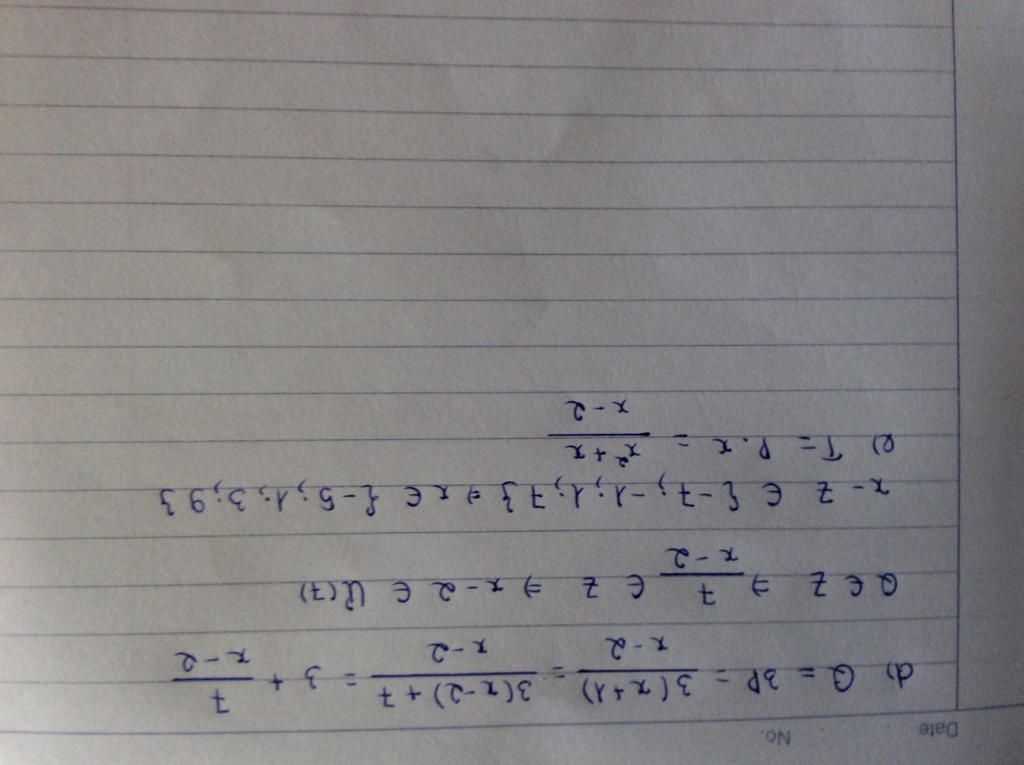 Date No.
d) Q = 3P = 3(x+1)/(x-2) = (3(x-2)+7)/(x-2) = 3 + 7/(x-2)
Q ∈ Z ⇒ 7/(x-2) ∈ Z ⇒ x-2 ∈ Ư(7)
x - 2 ∈ {-7; -1; 1; 7} ⇒ x ∈ {-5; 1; 3; 9}
e) T = P.x = (x²+x)/(x-2)